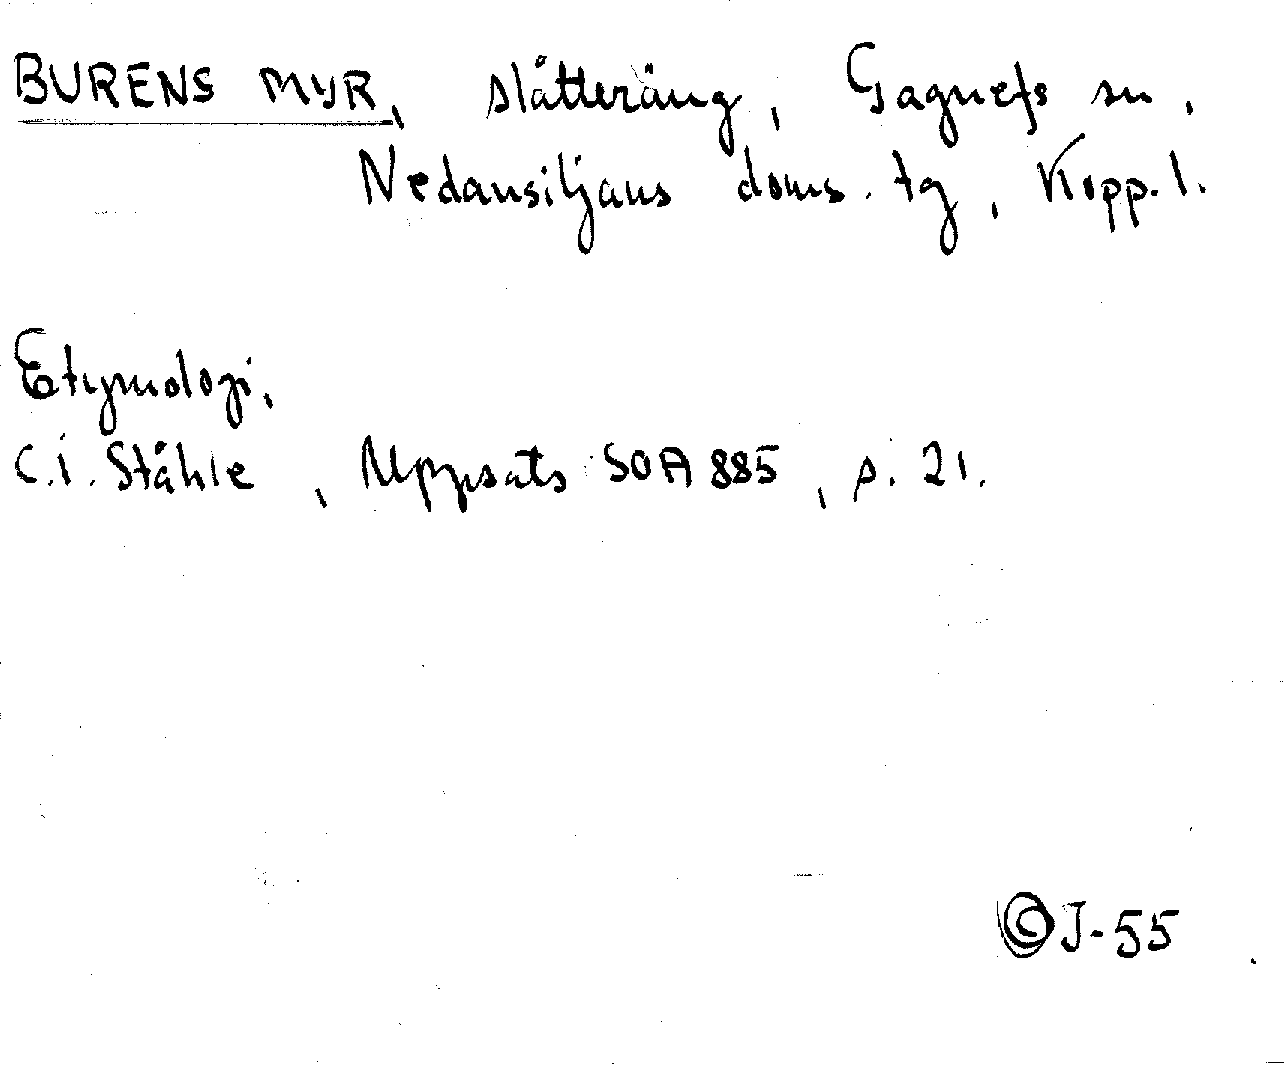 BURENS MYR, slåtteräng, Gagnefs sn,
Nedansiljans doms. tg, Kopp. l.
Etymologi.
C.I. Ståhle, Uppsats SOA 885, s. 21.
©J-55